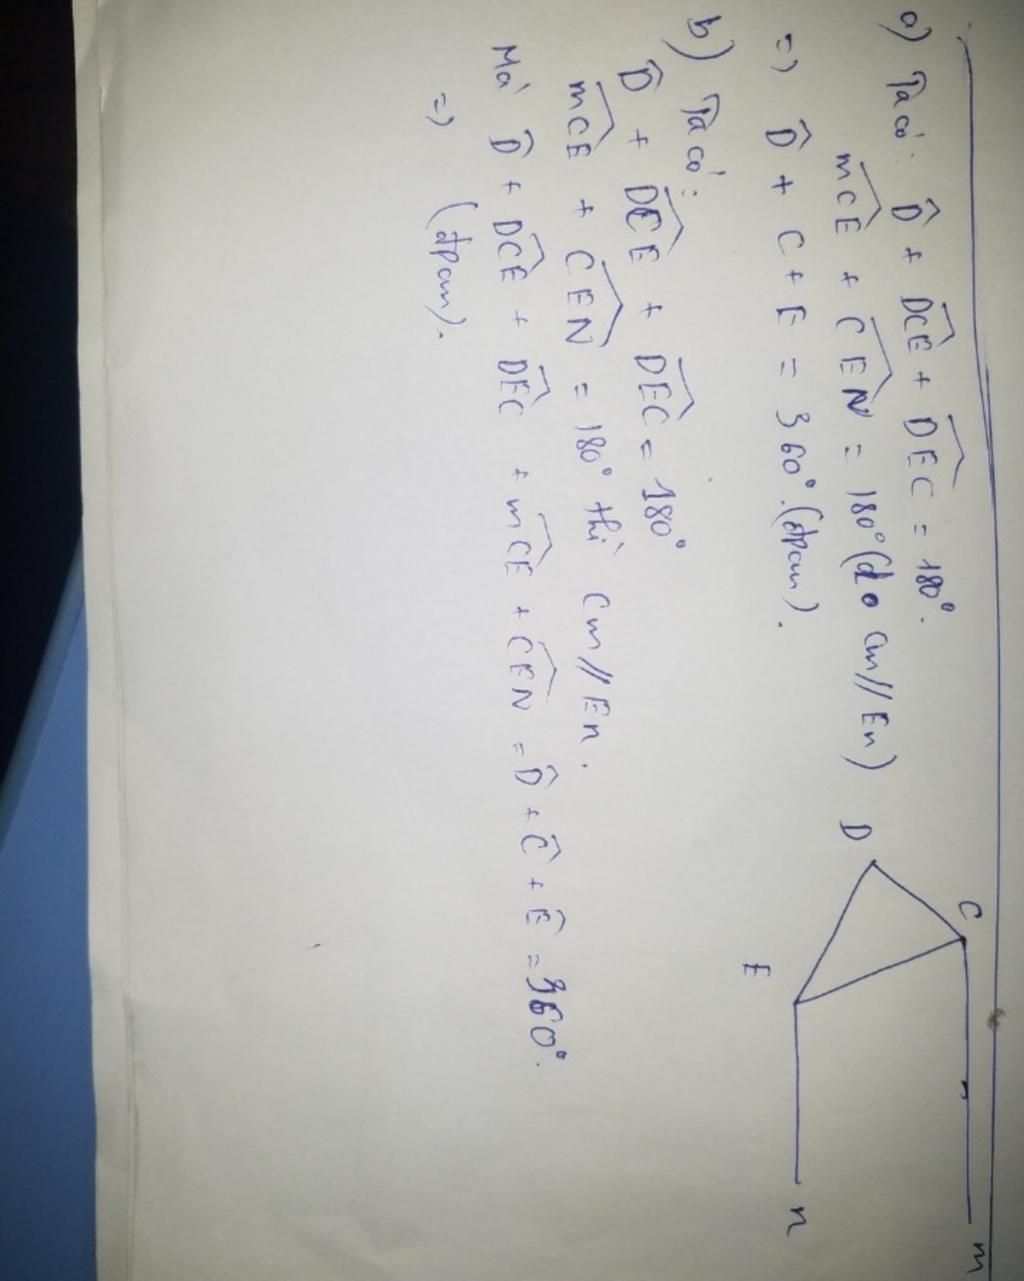 a) Ta có: D̂ + DCE + DEC = 180°.
mCE + CEN = 180° (do Cm // En)
=> D̂ + C + E = 360°. (đpcm).
b) Ta có:
D̂ + DCE + DEC = 180°
mCE + CEN = 180° thì Cm // En.
Mà D̂ + DCE + DEC + mCE + CEN = D̂ + Ĉ + Ê = 360°.
=> (đpcm).
D
C
E
m
n